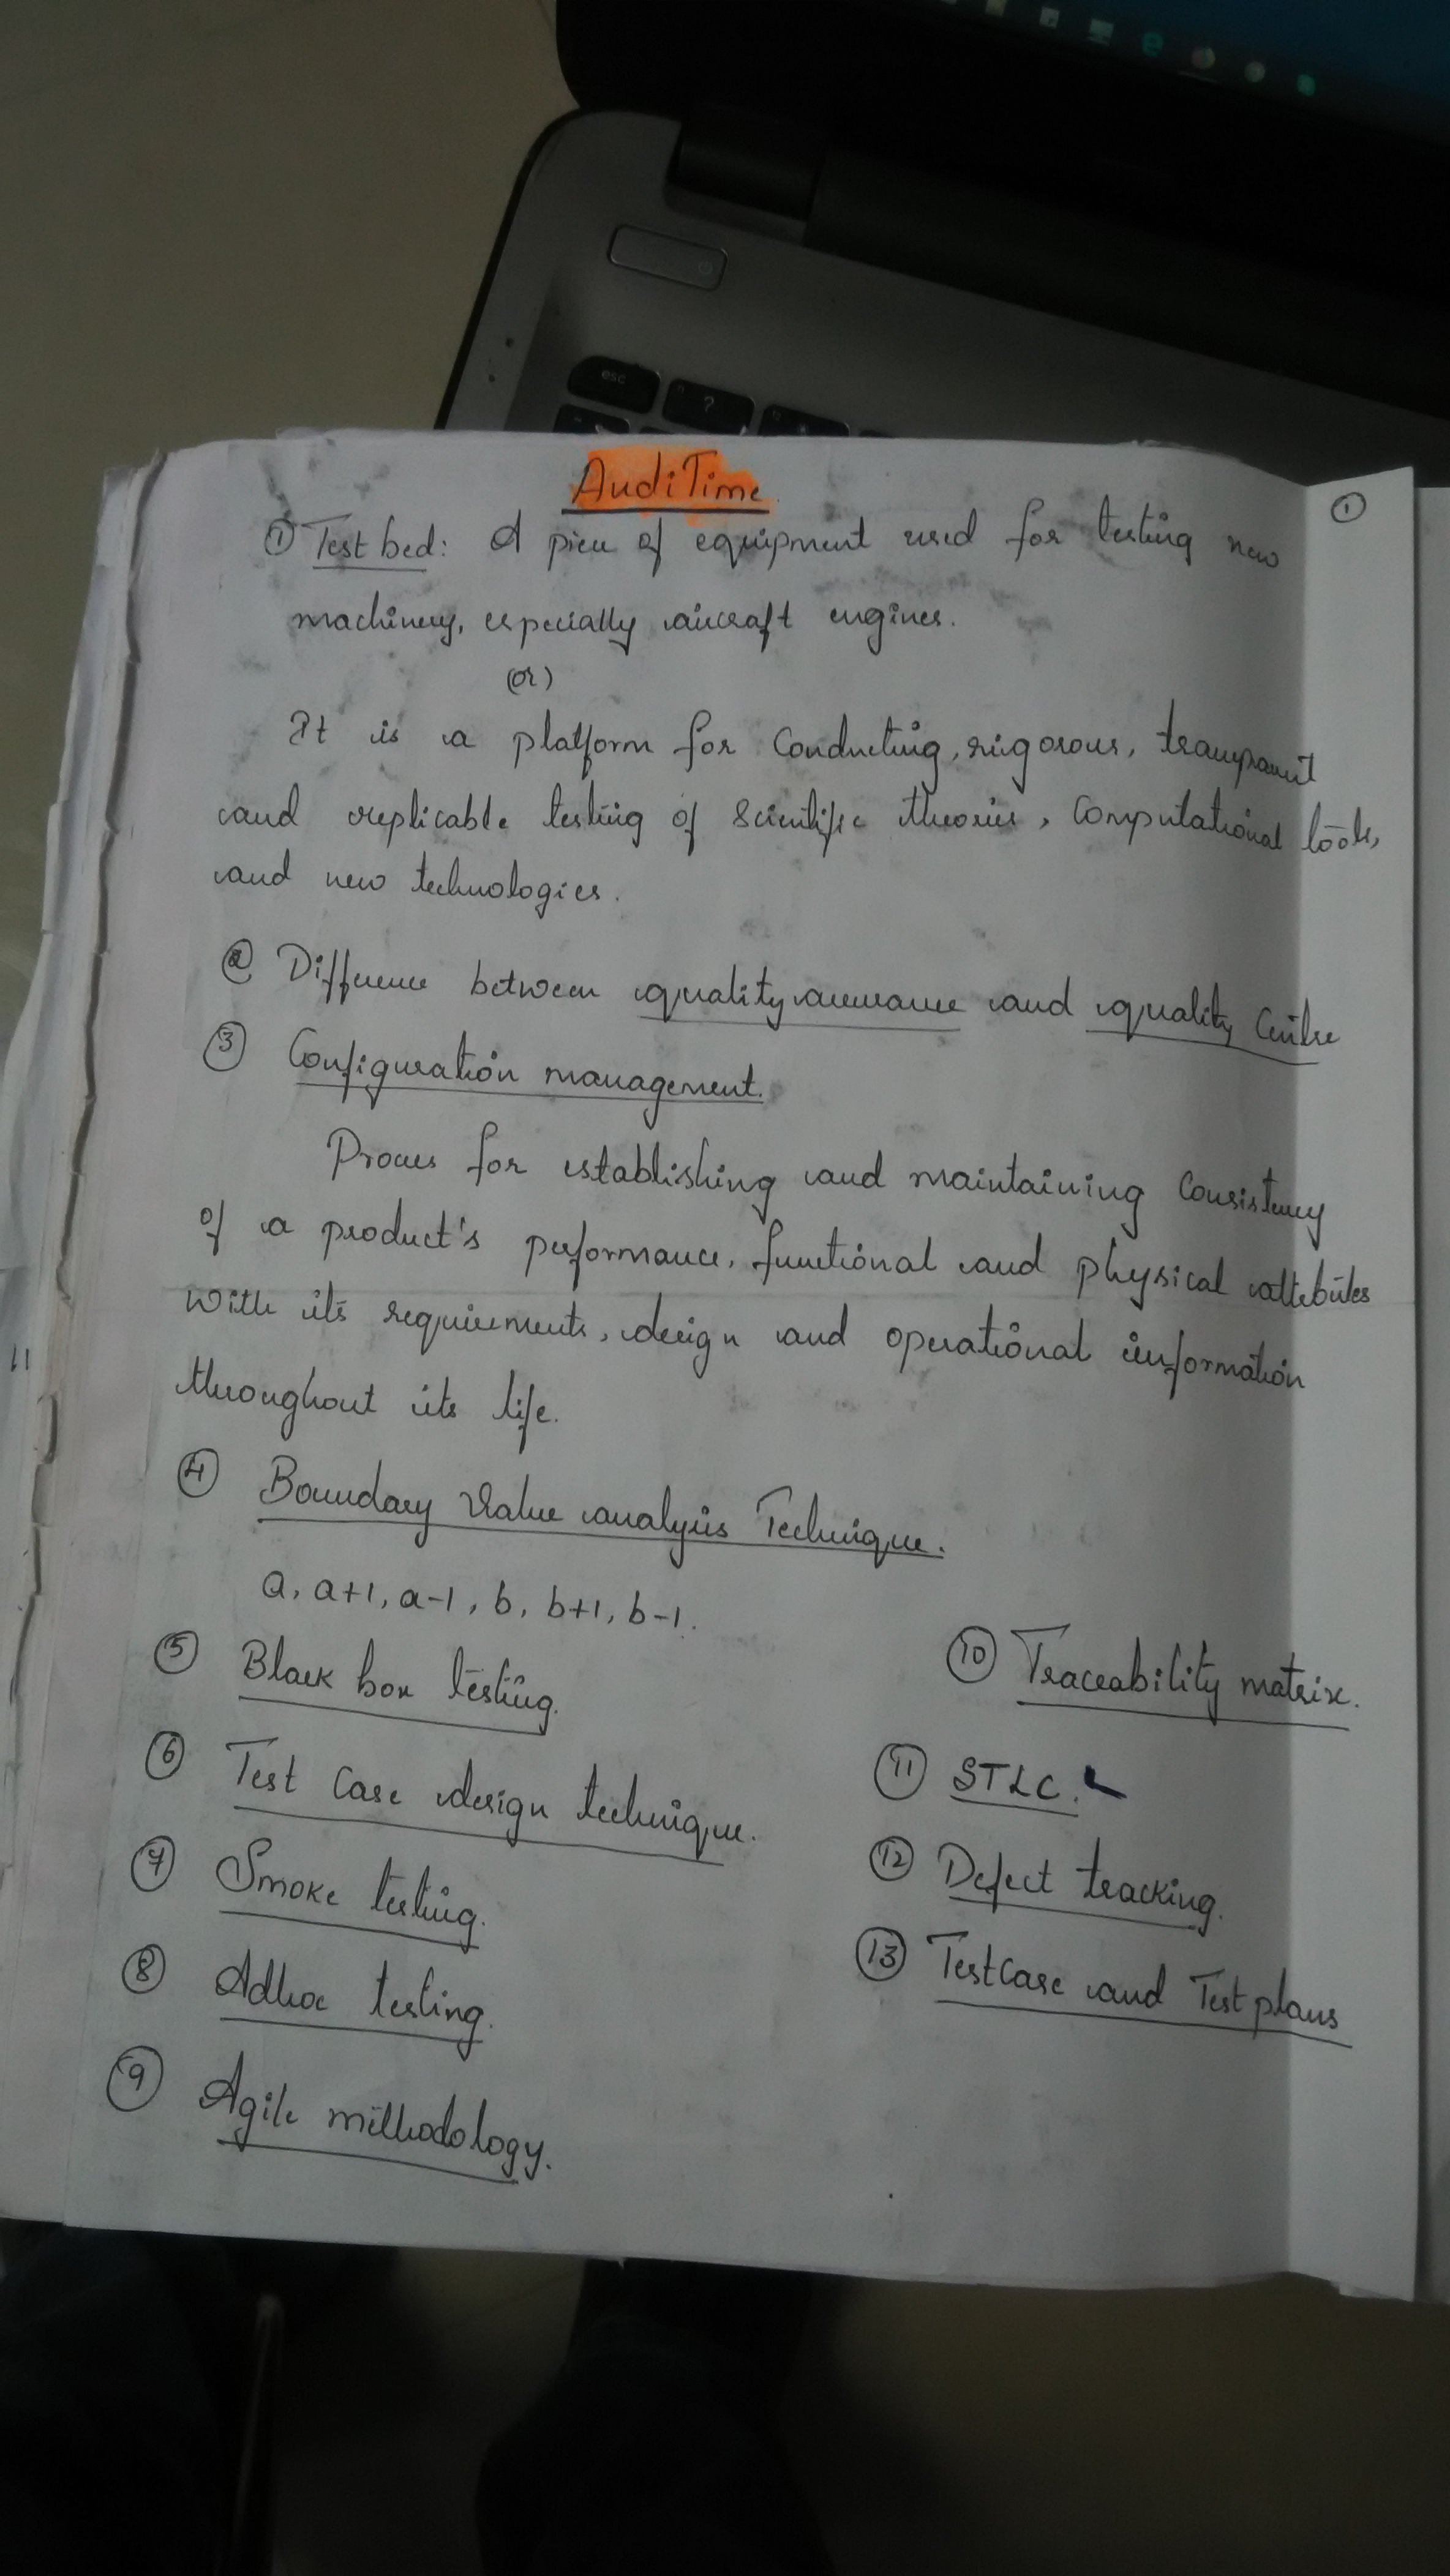 AudiTime
①
① Test bed: A piece of equipment used for testing new
machinery, especially aircraft engines.
(or)
It is a platform for conducting, rigorous, transparent
and replicable testing of scientific theories, computational tools,
and new technologies.
② Difference between quality assurance and quality centre
③ Configuration management.
Process for establishing and maintaining consistency
of a product's performance, functional and physical attributes
with its requirements, design and operational information
throughout its life.
④ Boundary Value analysis Technique.
a, a+1, a-1, b, b+1, b-1.
⑤ Black box testing.
⑥ Test Case design technique.
⑦ Smoke testing.
⑧ Adhoc testing.
⑨ Agile methodology.
⑩ Traceability matrix.
⑪ STLC.
⑫ Defect tracking.
⑬ Testcase and Test plans
11
esc
?